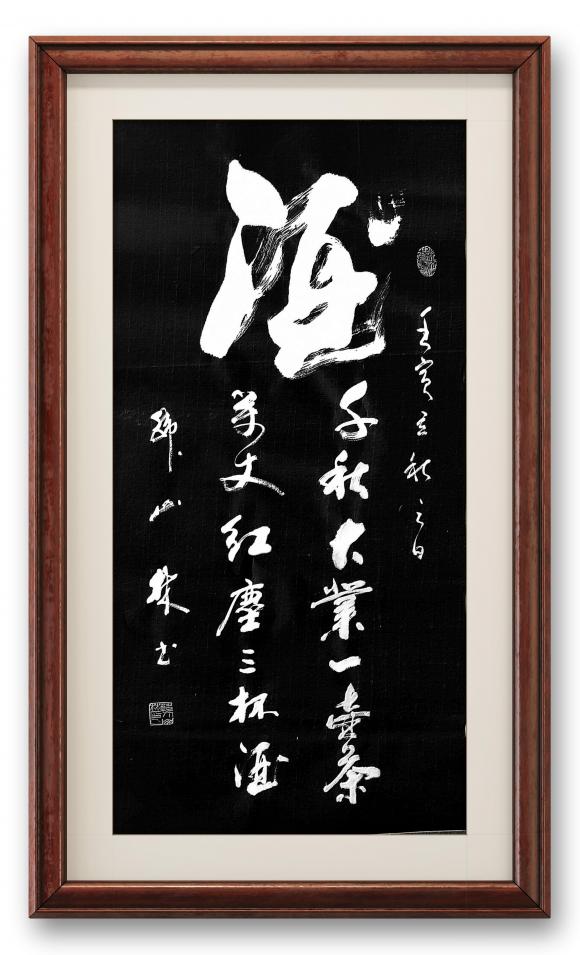 酒
壬寅立秋之日
千秋大業一壺茶
萬丈紅塵三杯酒
书